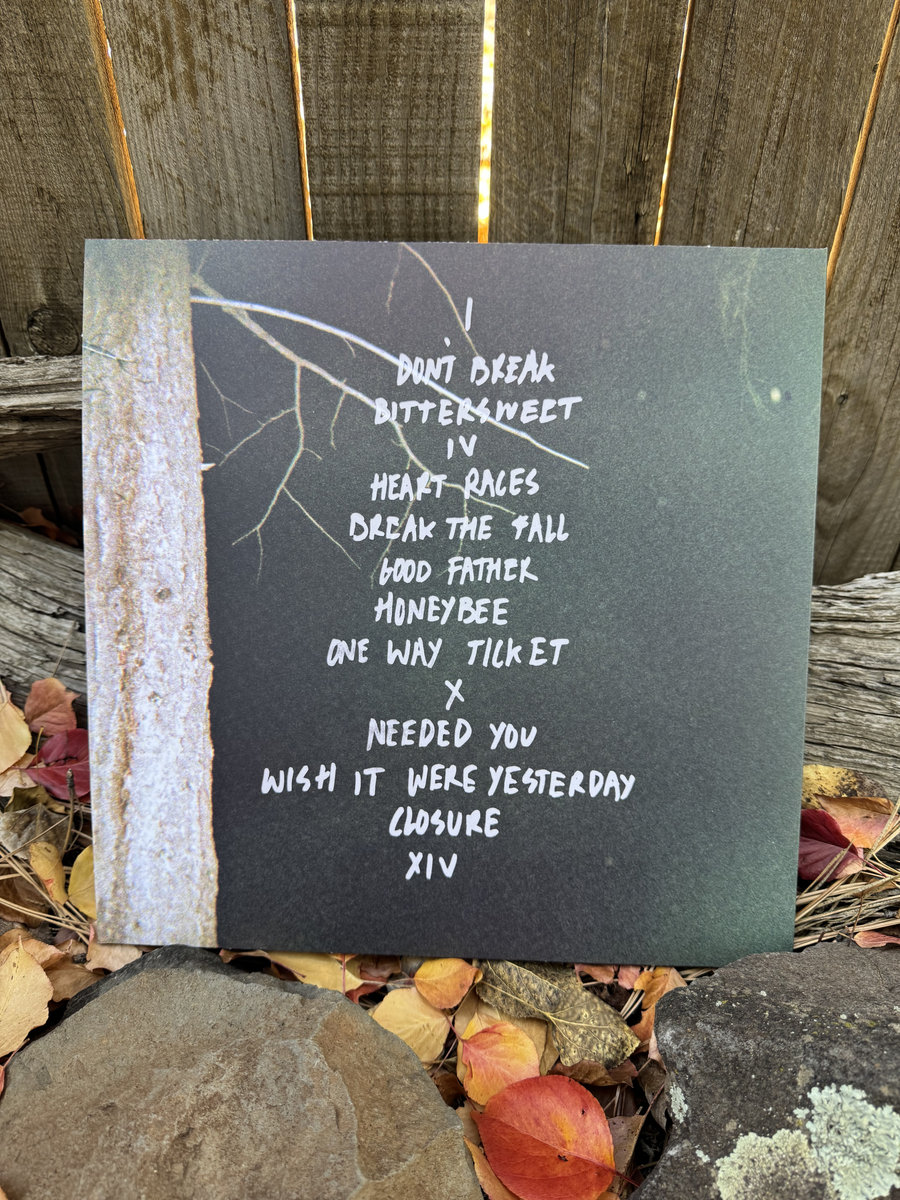 I
DON'T BREAK
BITTERSWEET
IV
HEART RACES
BREAK THE FALL
GOOD FATHER
HONEYBEE
ONE WAY TICKET
X
NEEDED YOU
WISH IT WERE YESTERDAY
CLOSURE
XIV